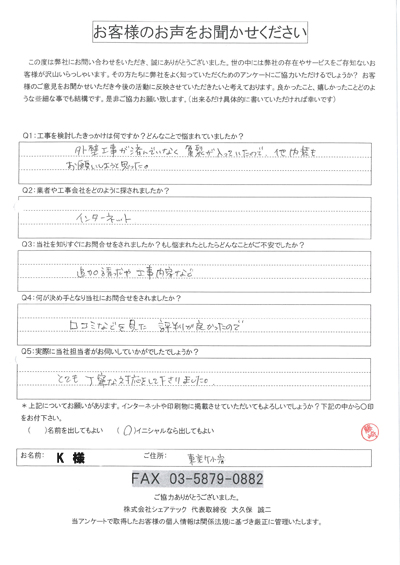 お客様のお声をお聞かせください
この度は弊社にお問い合わせをいただき、誠にありがとうございます。世の中には弊社の存在やサービスをご存知ないお
客様が沢山いらっしゃいます。その方たちに弊社をよく知っていただくためのアンケートにご協力いただけるでしょうか？ お客
様のご意見をお聞かせいただき今後の活動に反映させていただきたいと考えております。良かったこと、嬉しかったことどのよ
うな些細な事でも結構です。是非ご協力お願い致します。（出来るだけ具体的に書いていただければ幸いです）
Q1：工事を検討したきっかけは何ですか？どんなことで悩まれていましたか？
外壁工事が済んでいなく 亀裂が入っていたので、
お願いしようと思った。
Q2：業者や工事会社をどのように探されましたか？
インターネット
Q3：当社を知りすぐにお問合せをされましたか？もし悩まれたとしたらどんなことがご不安でしたか？
追加請求や工事内容など
Q4：何が決め手となり当社にお問合せをされましたか？
口コミなどを見た 評判が良かったので
Q5：実際に当社担当者がお伺いしていかがでしたでしょうか？
とても丁寧な対応をして下さりました。
＊上記についてお願いがあります。インターネットや印刷物に掲載させていただいてもよろしいでしょうか？下記の中から○印
をお付下さい。
（ ）名前を出してもよい （○）イニシャルなら出してもよい
お名前： K 様 ご住所：
FAX 03-5879-0882
ご協力ありがとうございました。
株式会社シェアテック 代表取締役 大久保 誠二
当アンケートで取得したお客様の個人情報は関係法規に基づき厳正に管理いたします。